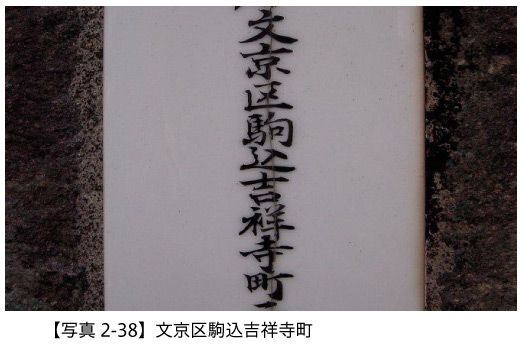 文京区駒込吉祥寺町
【写真 2-38】文京区駒込吉祥寺町